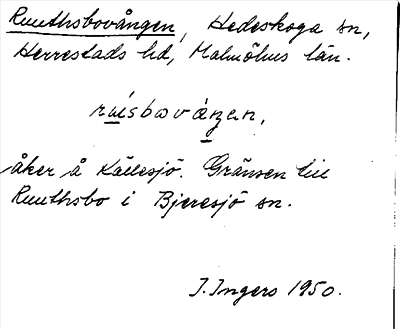 Ruuthsbovången, Hedeskoga sn,
Herrestads hd, Malmöhus län.
ruisbovåŋen,
åker å Källesjö. Gränsen till
Ruuthsbo i Bjeresjö sn.
I. Ingers 1950.